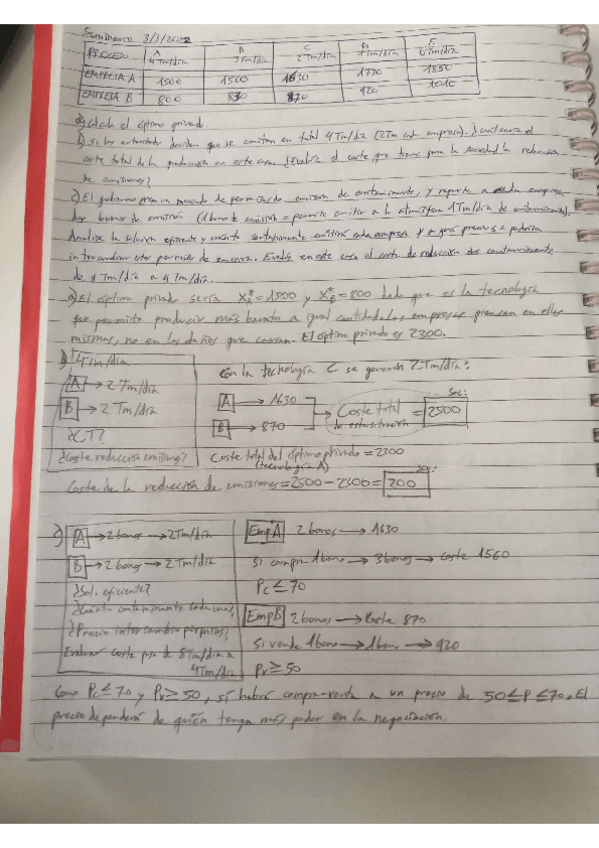 Seminario 3/3/2022
PROCESO A 4Tm/día B 3Tm/día C 2Tm/día D 1Tm/día E 0Tm/día
EMPRESA A 1500 1560 1630 1730 1850
EMPRESA B 800 830 870 920 1010
a) Calcula el óptimo privado.
b) Si las autoridades deciden que se emitan en total 4Tm/día (2Tm cada empresa). ¿Cuál sería el
coste total de la producción en este caso. ¿Evalúa el coste que tiene para la sociedad la reducción
de emisiones?
c) El gobierno crea un mercado de permisos de emisión de contaminantes, y reparte a cada empresa
dos bonos de emisión (1 bono de emisión = permite emitir a la atmósfera 1Tm/día de contaminante).
Analiza la solución eficiente y cuánto contaminante emitirá cada empresa y a qué precios se podrían
intercambiar estos permisos de emisión. Evalúa en este caso el coste de reducción de contaminante
de 8Tm/día a 4Tm/día.
a) El óptimo privado sería XA*=1500 y XB*=800 dado que es la tecnología
que permite producir más barato a igual cantidad. Las empresas piensan en ellas
mismas, no en los daños que causan. El óptimo privado es 2300.
b) 4Tm/día
A → 2Tm/día
B → 2Tm/día
¿CT?
¿Coste reducción emisiones?
Con la tecnología C se generan 2Tm/día:
A → 1630
B → 870
Coste total de esta situación = 2500
Sol:
Coste total del óptimo privado = 2300
(tecnología A)
Coste de la reducción de emisiones = 2500 - 2300 = 200
Sol:
c) A → 2 bonos → 2Tm/día
B → 2 bonos → 2Tm/día
¿Sol. eficiente?
¿Cuánto contaminante cada una?
¿Precio intercambio permisos?
Evaluar coste pasa de 8Tm/día a
4Tm/día
Emp A 2 bonos → 1630
Si compra 1 bono → 3 bonos → Coste 1560
Pc ≤ 70
Emp B 2 bonos → Coste 870
Si vende 1 bono → 1 bono → 920
Pv ≥ 50
Como Pc ≤ 70 y Pv ≥ 50, sí habrá compra-venta a un precio de 50 ≤ P ≤ 70. El
precio dependerá de quién tenga más poder en la negociación.